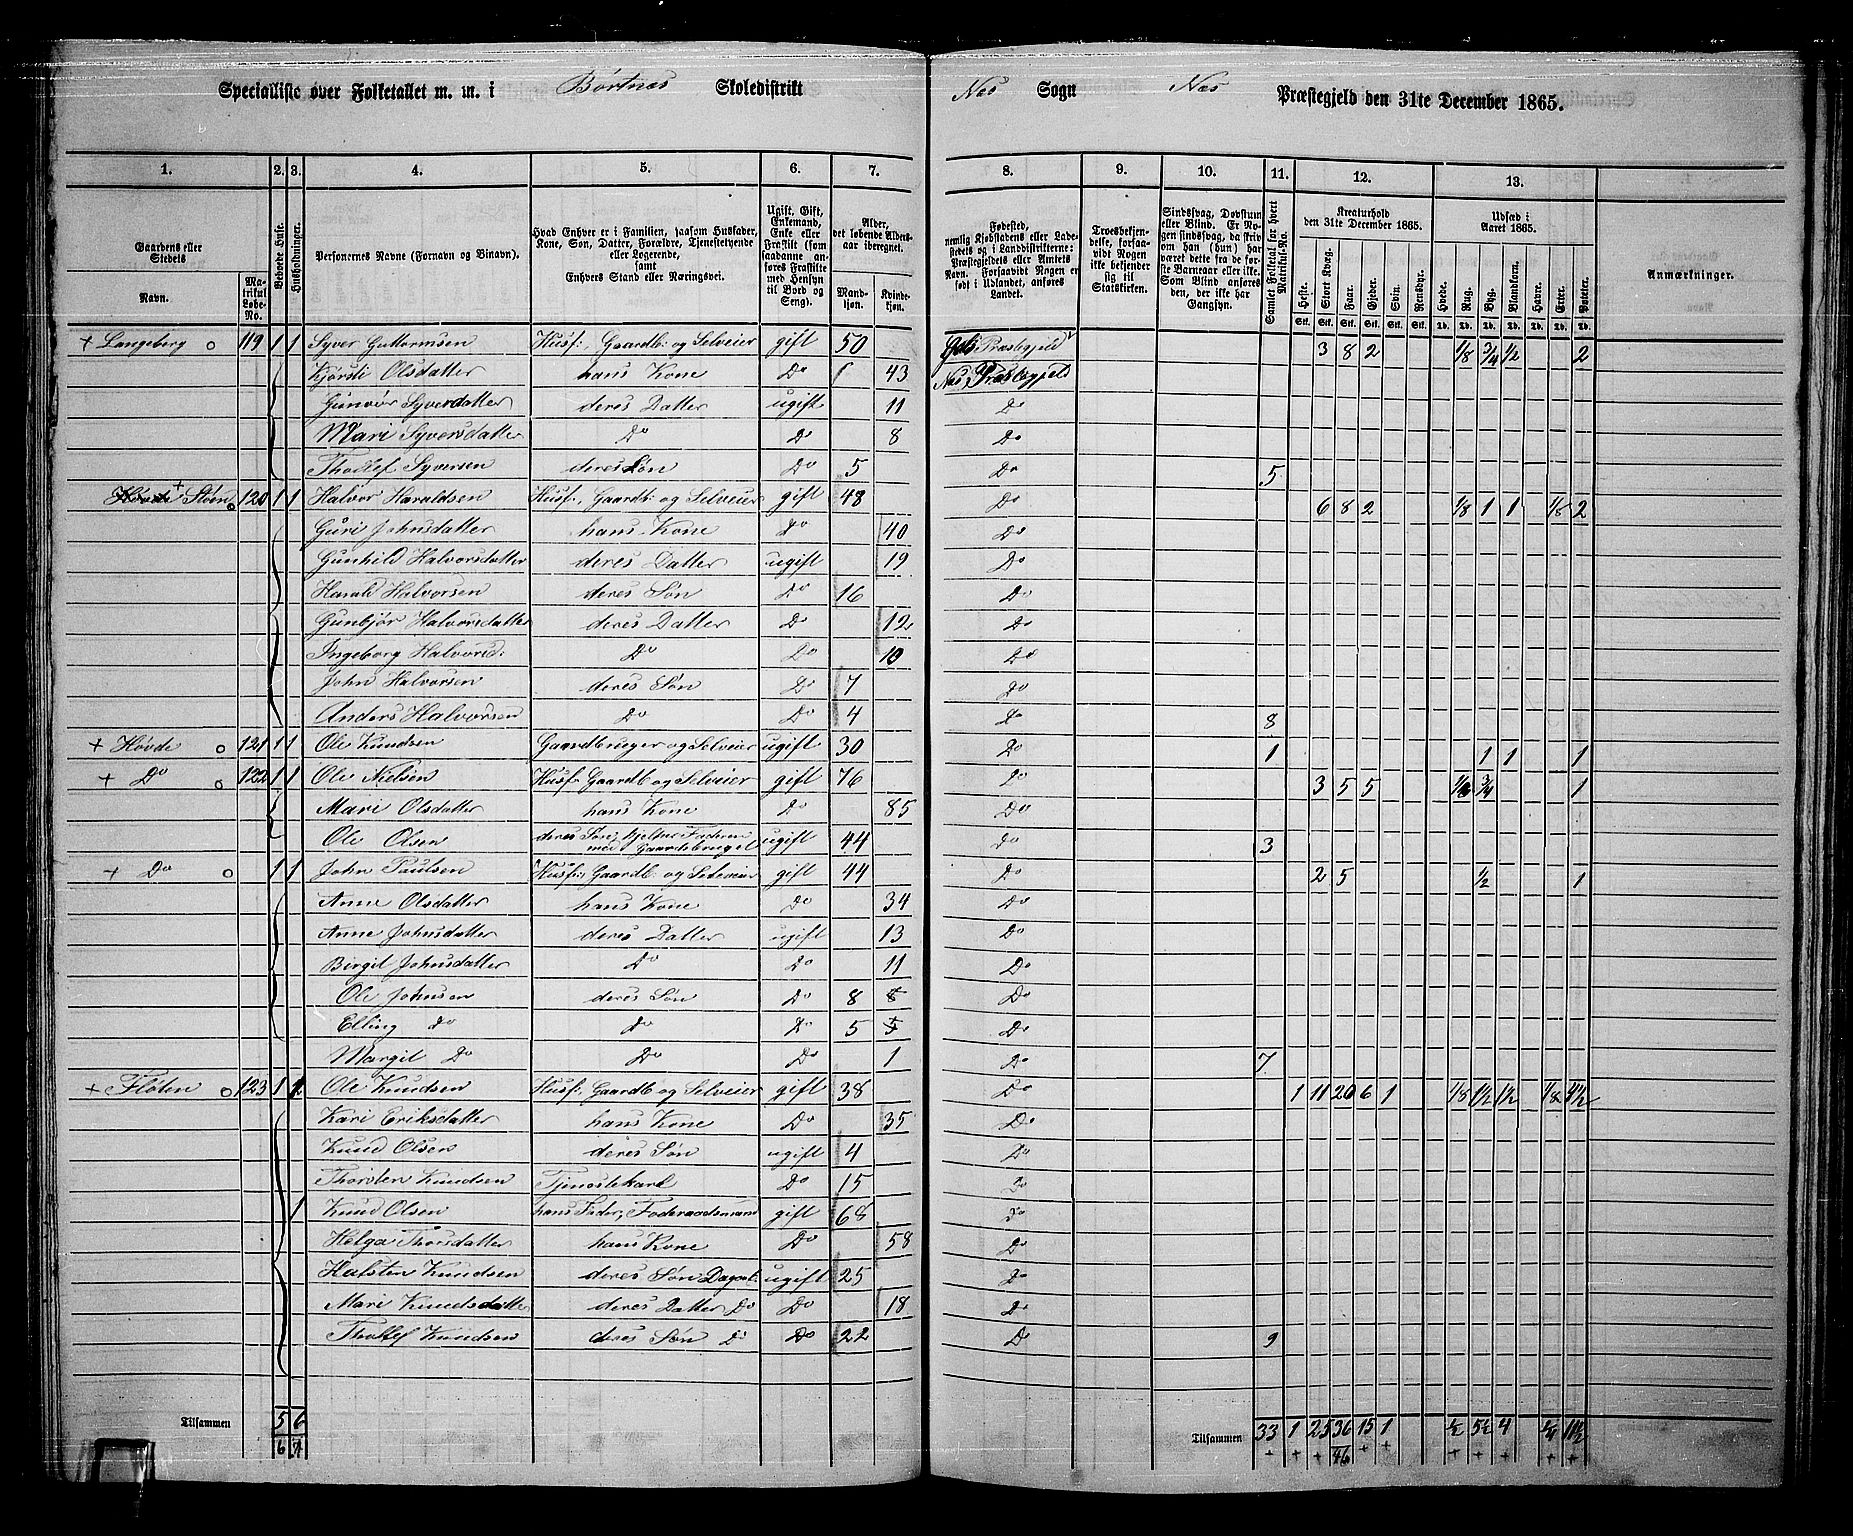 Specialliste over Folketallet m. m. i Børtnes Skoledistrikt Nes Sogn Nes Præstegjeld den 31te December 1865.
1. 2. 3. 4. 5. 6. 7. 8. 9. 10. 11. 12. 13.
Gaardens eller Stedets Navn. Matrikul Løbe-No. Beboede Huse. Husholdninger. Personernes Navne (Fornavn og Binavn). Hvad Enhver er i Familien, saasom Husfader, Kone, Søn, Datter, Forældre, Tjenestetyende eller Logerende, samt Enhvers Stand eller Næringsvei. Ugift, Gift, Enkemand, Enke eller Fraskilt (som saadanne anføres Fraskilte med Hensyn til Bord og Seng). Alder, det løbende Aldersaar iberegnet. Mandkjøn. Kvindekjøn. Fødested, nemlig Kjøbstadens eller Ladestedets og i Landdistrikterne: Præstegjeldets eller Amtets Navn. Forsaavidt Nogen er født i Udlandet, anføres Landet. Troesbekjendelse, forsaavidt Nogen ikke bekjender sig til Statskirken. Sindssvag, Døvstum eller Blind. Er Nogen sindssvag, da skriv om han (hun) har været dette fra de første Barneaar eller ikke. Som Blind anføres den, der ikke har Gangsyn. Samlet Folketal for hvert Matrikul-No. Kreaturhold den 31te December 1865. Udsæd i Aaret 1865. Anmærkninger.
Heste. Stort Kvæg. Faar. Gjeder. Svin. Rensdyr. Hvede. Rug. Byg. Blandkorn. Havre. Erter. Poteter.
Stk. Stk. Stk. Stk. Stk. Stk. Td. Td. Td. Td. Td. Td. Td.
+ Langeberg o 119 1 1 Syver Guttormsen Husf: Gaardb: og Selveier gift 50 Gols Præstegjeld 3 8 2 1/8 3/4 1/2 2
Kjørsti Olsdatter hans Kone Do 43 Nes Præstegjeld
Gunvor Syversdatter deres Datter ugift 11 Do
Mari Syversdatter Do Do 8 Do
Thollef Syversen deres Søn Do 5 Do 5
Hovde + Støen o 120 1 1 Halvor Haraldsen Husf: Gaardb: og Selveier gift 48 Do 6 8 2 1/8 1 1 1/8 2
Guri Johnsdatter hans Kone Do 40 Do
Gunhild Halvorsdatter deres Datter ugift 19 Do
Harald Halvorsen deres Søn Do 16 Do
Gunbjør Halvorsdatter deres Datter Do 12 Do
Ingeborg Halvorsd: Do Do 10 Do
John Halvorsen deres Søn Do 7 Do
Anders Halvorsen Do Do 4 Do 8
+ Hovde o 121 1 1 Ole Knudsen Gaardbruger og Selveier ugift 30 Do 1 1 1 1
+ Do o 122 1 1 Ole Nielsen Husf: Gaardb og Selveier gift 76 Do 3 5 5 3/4 1
Mari Olsdatter hans Kone Do 85 Do
Ole Olsen deres Søn, hjelper Faderen med Gaardsbruget ugift 44 Do 3
+ Do o 1 1 John Paulsen Husf: Gaardb: og Selveier gift 44 Do 2 5 1/2 1
Anne Olsdatter hans Kone Do 34 Do
Anne Johnsdatter deres Datter ugift 13 Do
Birgit Johnsdatter Do Do 11 Do
Ole Johnsen deres Søn Do 8 8 Do
Elling Do Do Do 5 5 Do
Margit Do Do Do 1 Do 7
+ Fløten o 123 1 2 Ole Knudsen Husf: Gaardb og Selveier gift 38 Do 1 11 20 6 1 1/8 1 1/2 1 1/2 1/8 4 1/2
Kari Eriksdatter hans Kone Do 35 Do
Knud Olsen deres Søn ugift 4 Do
Thorsten Knudsen Tjenestekarl Do 15 Do
1 Knud Olsen hans Fader, Foderaadsmand gift 68 Do
Helga Thorsdatter hans Kone Do 58 Do
Halsten Knudsen deres Søn Dagarb: ugift 25 Do
Mari Knudsdatter deres Datter Do Do 18 Do
Thollef Knudsen deres Søn Do Do 22 Do 9
Tilsammen 5 6 Tilsammen 33 1 25 36 15 1 1/2 5 1/2 4 1/4 11 1/2
6 7 + + + 46 + + + + + + +